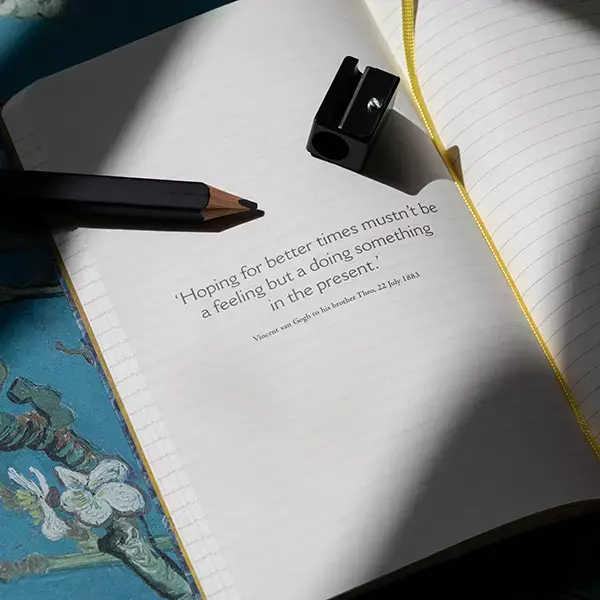 ‘Hoping for better times mustn’t be
a feeling but a doing something
in the present.’
Vincent van Gogh to his brother Theo, 22 July 1883